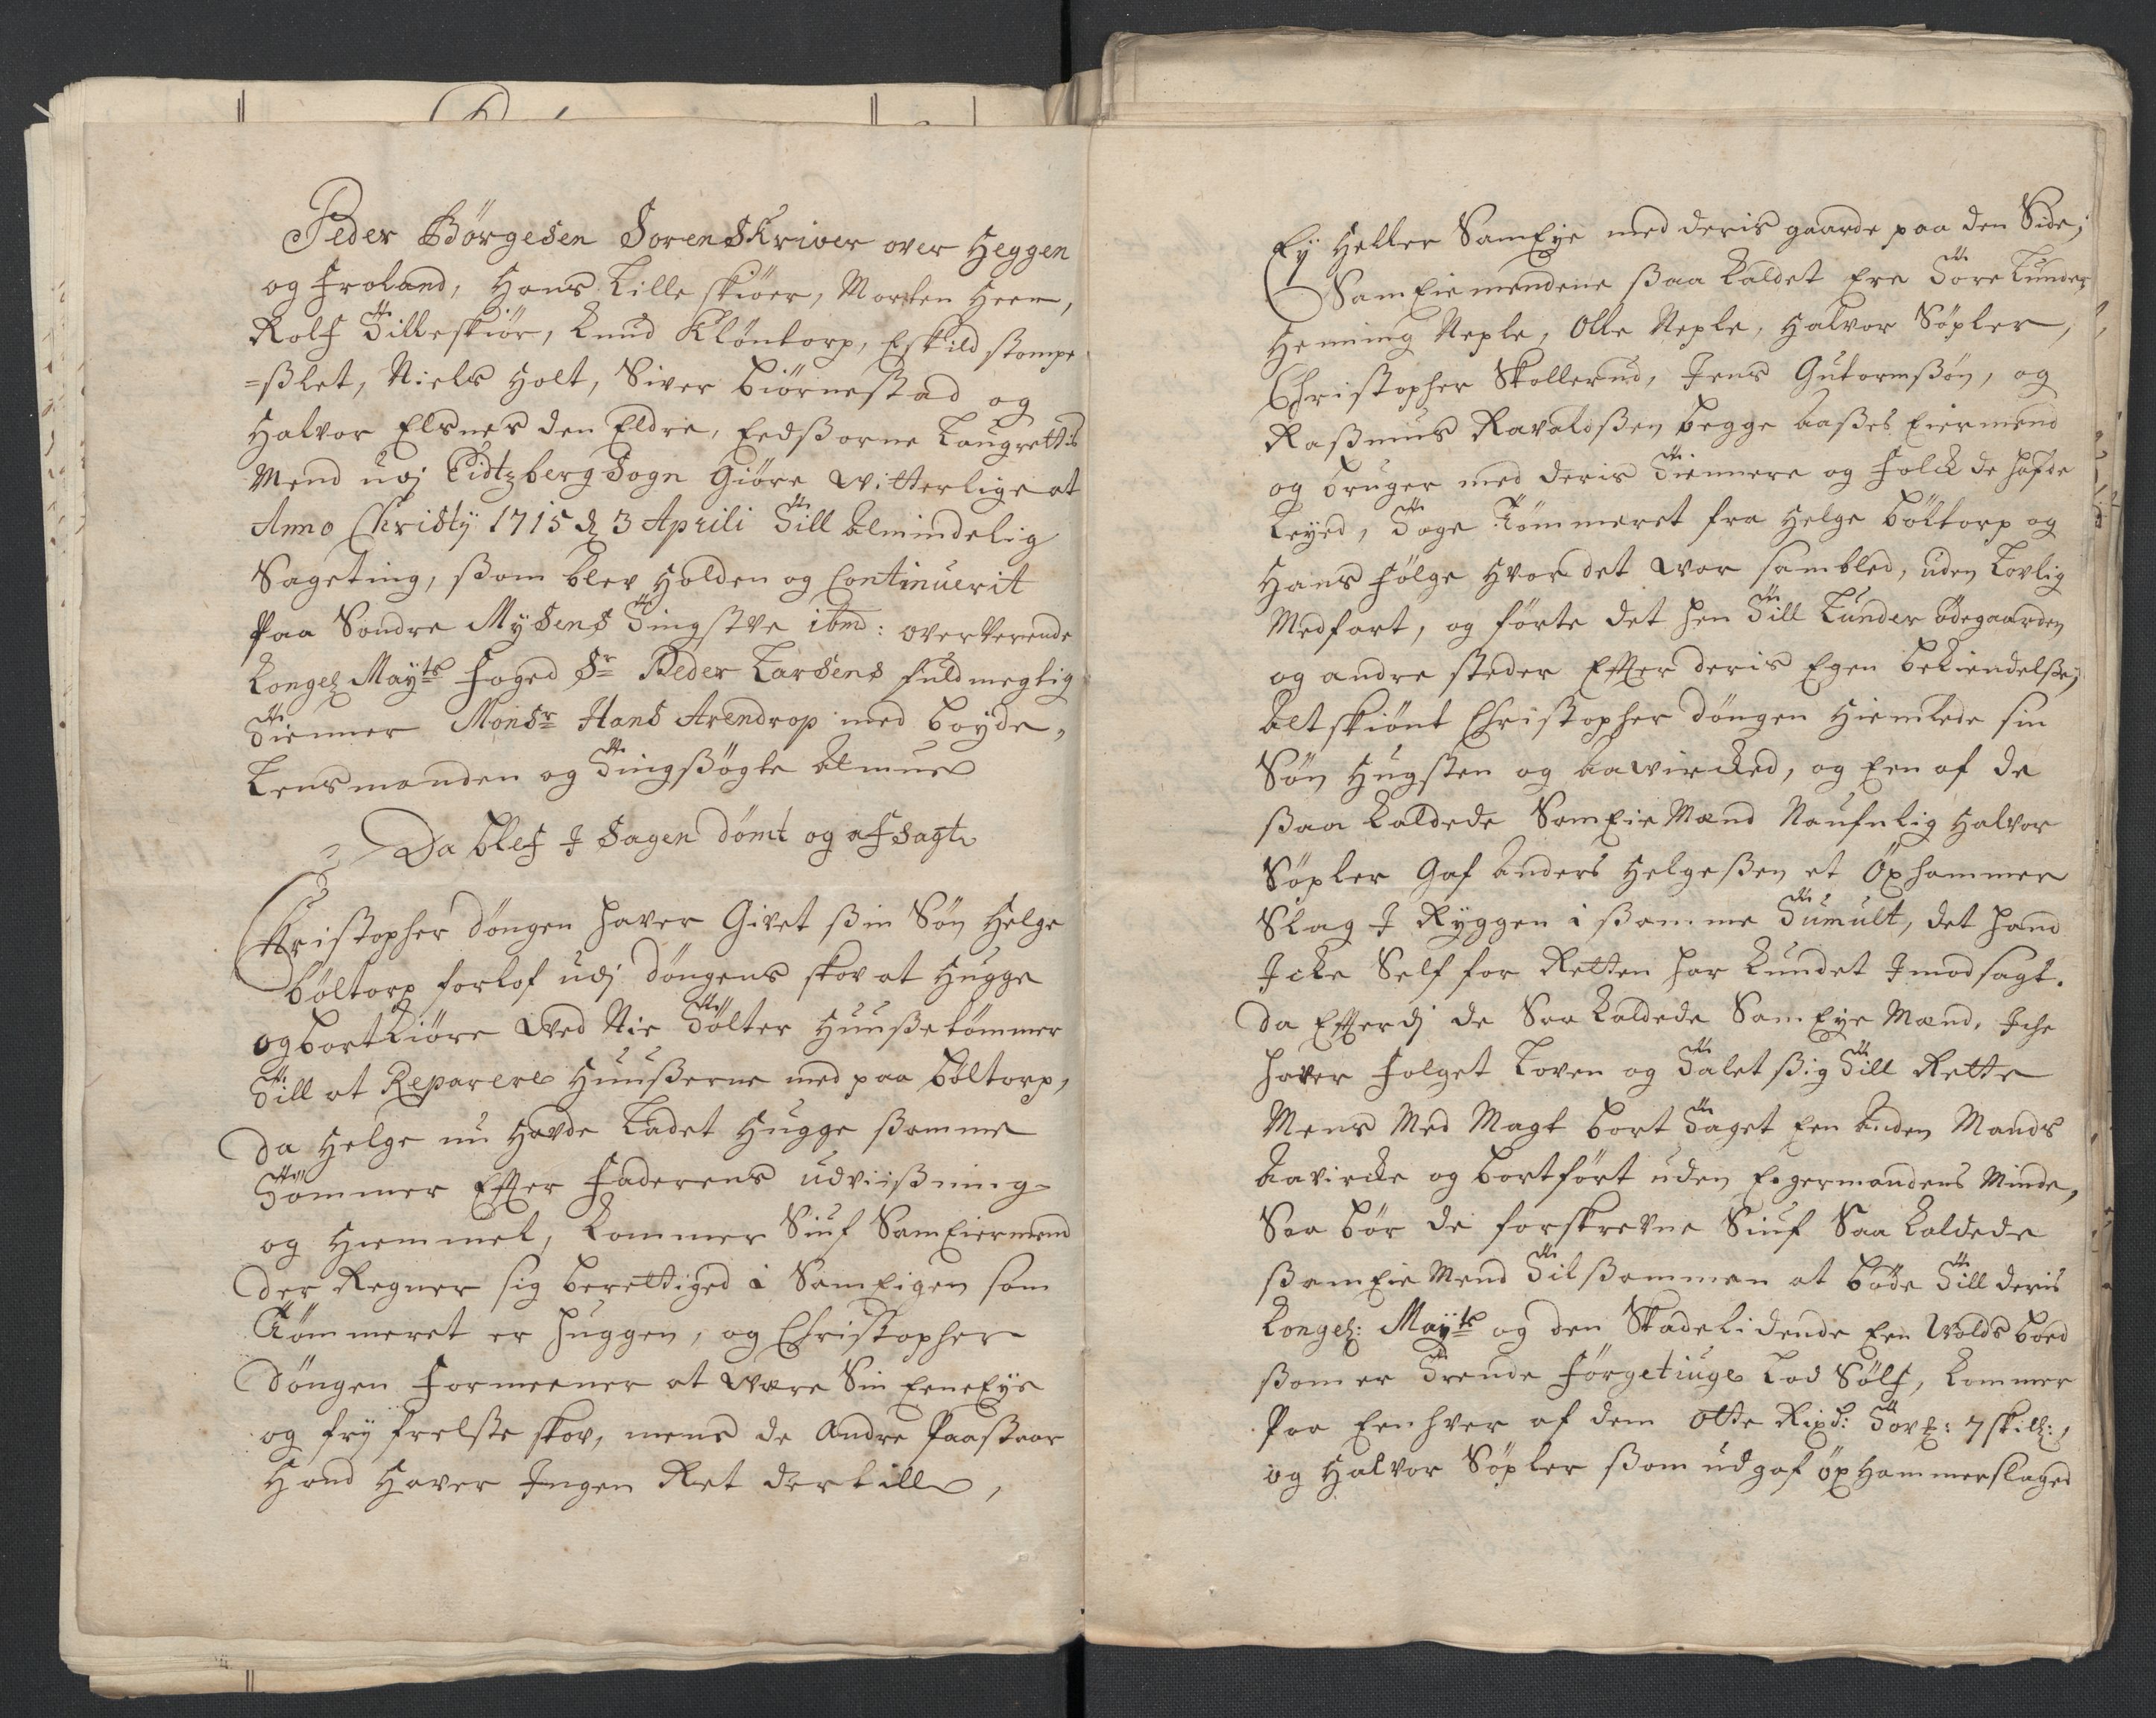 Peder Börgesen SorenSkriver over Heggen
og Froland, Hans Lilleskiöer, Morten Heen,
Rolf Tilleskiör, Knud Klöntorp, Eskild Stompe
=ßlet, Niels Holt, Siver Biörnestad og
Halvor Elsnes den Eldre, Eedßorne Laugrettis
Mend udj Eidtzberg Sogn Giöre Witterlige at
Anno Christy 1715 d 3 Aprili Till Almindelig
Sageting, ßom blev Holden og Continuerit
Paa Sondre Mysens Tingstve ibmd: oververende
Kongel Mayts Foged Sr Peder Larsens fuldmegtig
Tienner Monsr Hans Arendrop med boyde,
Lensmanden og Tingßögte Almue
Da blef I Sagen dömt og afsagt
Christopher Döngen haver Givet ßin Sön Helge
Böltorp forlof udj Döngens skov at Hugge
og bortkiöre Wed Nie Tölter Huußetömmer
Till at Reparere Huußerne med paa Böltorp,
da Helge nu Havde Ladet Hugge ßamme
Tömmer Efter Faderens udviißning
og Hiemmel, kommer Siuf SamEiermend
der Regner sig berettiged i SamEigen som
Tömmeret er huggen, og Christopher
Döngen Formeener at Være Sin EeneEye
og fry frelste skov, mens de Andre Paastaar
Hand Haver Ingen Ret dertill,
Ey Heller SamEye med deris gaarde paa den Side;
SamEiemendene ßaa kaldet Ere Tore Lunder
Henning Neple, Olle Neple, Halvor Söpler,
Christopher Skollerud, Jens Gutormßön, og
Raßmus Ravaldßen begge Aaßes Eiermend
og bruger med deris Tiennere og Folck de hafde
Leyed, Toge Tömmeret fra Helge Böltorp og
Hans Fölge Hvor det War samblet, uden Lovlig
Medfart, og förte det hen Till Lunder ödegaarden
og andre steder Efter deris Egen bekiendelße;
Alt skiönt Christopher Döngen Hiemlede sin
Sön Hugsten og Aawircked, og Een af de
ßaa kaldede SamEieMænd Naufnlig Halvor
Söpler Gaf Anders Helgeßen et Öxhammer
Slag I Ryggen i ßamme Tumult, det hand
Icke Self for Retten har kundet Imodsagt.
da Efterdj de Saa kaldede SamEyeMænd, Iche
haver Folget Loven og Talet ßig Till Rette
Mens Med Magt bort Taget Een Anden Mands
Aavircke og bortfört uden Eygermandens Minde,
Saa bör de forskrevne Siuf Saa kaldede
ßamEieMend Tilßammen at böde Till deris
Kongel: Mayts og den Skadelidende Een Woldsboed
ßom er Trende Förgetiuge Lod Sölf, kommer
Paa Eenhver af dem otte Rixd: Tov : 7 skill:,
og Halvor Söpler ßom udgaf öxHammerslaged